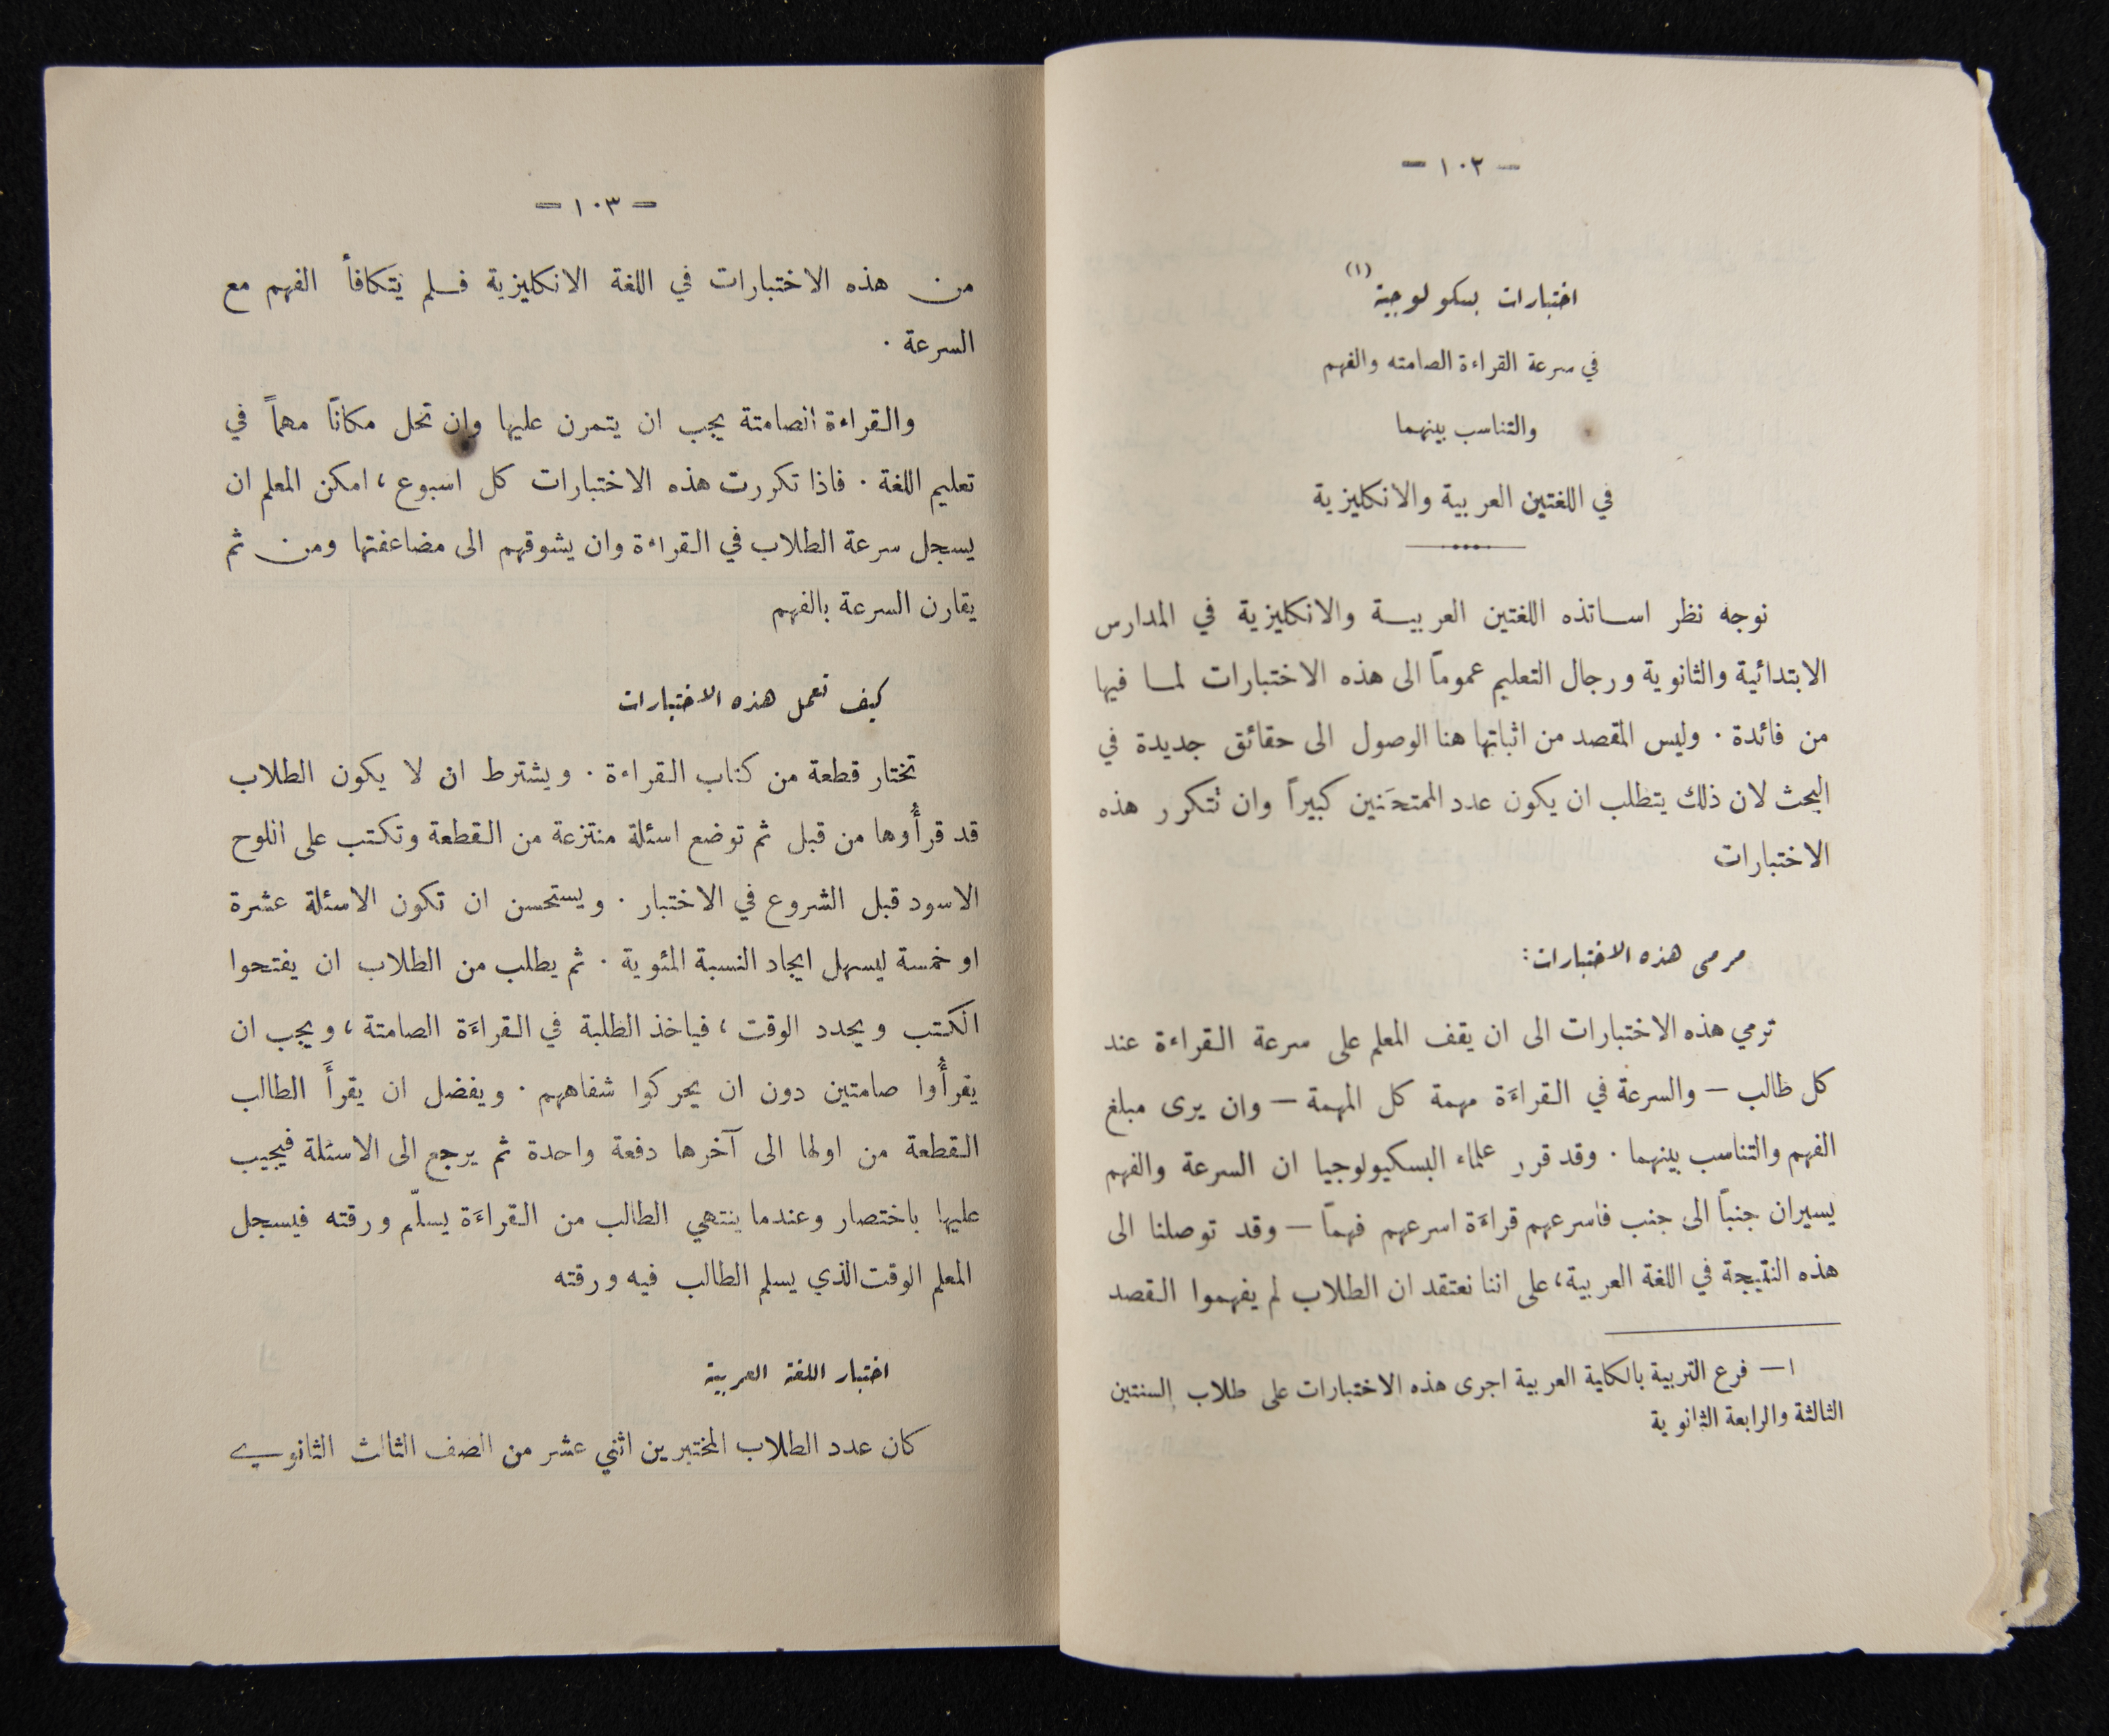 — ١٠٢ —
اختبارات بسكولوجية (١)
في سرعة القراءة الصامته والفهم
والتناسب بينهما
في اللغتين العربية والانكليزية
نوجه نظر اساتذه اللغتين العربية والانكليزية في المدارس
الابتدائية والثانوية ورجال التعليم عموماً الى هذه الاختبارات لما فيها
من فائدة . وليس المقصد من اثباتها هنا الوصول الى حقائق جديدة في
البحث لان ذلك يتطلب ان يكون عدد الممتحَنين كبيراً وان تتكرر هذه
الاختبارات
مرمى هذه الاختبارات :
ترمي هذه الاختبارات الى ان يقف المعلم على سرعة القراءة عند
كل طالب — والسرعة في القراءَة مهمة كل المهمة — وان يرى مبلغ
الفهم والتناسب بينهما . وقد قرر علماء البسكيولوجيا ان السرعة والفهم
يسيران جنباً الى جنب فاسرعهم قراءَة اسرعهم فهماً — وقد توصلنا الى
هذه النتيجة في اللغة العربية ، على اننا نعتقد ان الطلاب لم يفهموا القصد
١ — فرع التربية بالكلية العربية اجرى هذه الاختبارات على طلاب السنتين
الثالثة والرابعة الثانوية
— ١٠٣ —
من هذه الاختبارات في اللغة الانكليزية فلم يتكافأ الفهم مع
السرعة .
والقراءة الصامتة يجب ان يتمرن عليها وان تحل مكاناً مهماً في
تعليم اللغة . فاذا تكررت هذه الاختبارات كل اسبوع ، امكن المعلم ان
يسجل سرعة الطلاب في القراءة وان يشوقهم الى مضاعفتها ومن ثم
يقارن السرعة بالفهم
كيف تعمل هذه الاختبارات
تختار قطعة من كتاب القراءة . ويشترط ان لا يكون الطلاب
قد قرأُوها من قبل ثم توضع اسئلة منتزعة من القطعة وتكتب على اللوح
الاسود قبل الشروع في الاختبار . ويستحسن ان تكون الاسئلة عشرة
او خمسة ليسهل ايجاد النسبة المئوية . ثم يطلب من الطلاب ان يفتحوا
الكتب ويحدد الوقت ، فياخذ الطلبة في القراءَة الصامتة ، ويجب ان
يقرأُوا صامتين دون ان يحركوا شفاههم . ويفضل ان يقرأَ الطالب
القطعة من اولها الى آخرها دفعة واحدة ثم يرجع الى الاسئلة فيجيب
عليها باختصار وعندما ينتهي الطالب من القراءَة يسلّم ورقته فيسجل
المعلم الوقت الذي يسلم الطالب فيه ورقته
اختبار اللغة العربية
كان عدد الطلاب المختبرين اثني عشر من الصف الثالث الثانوي